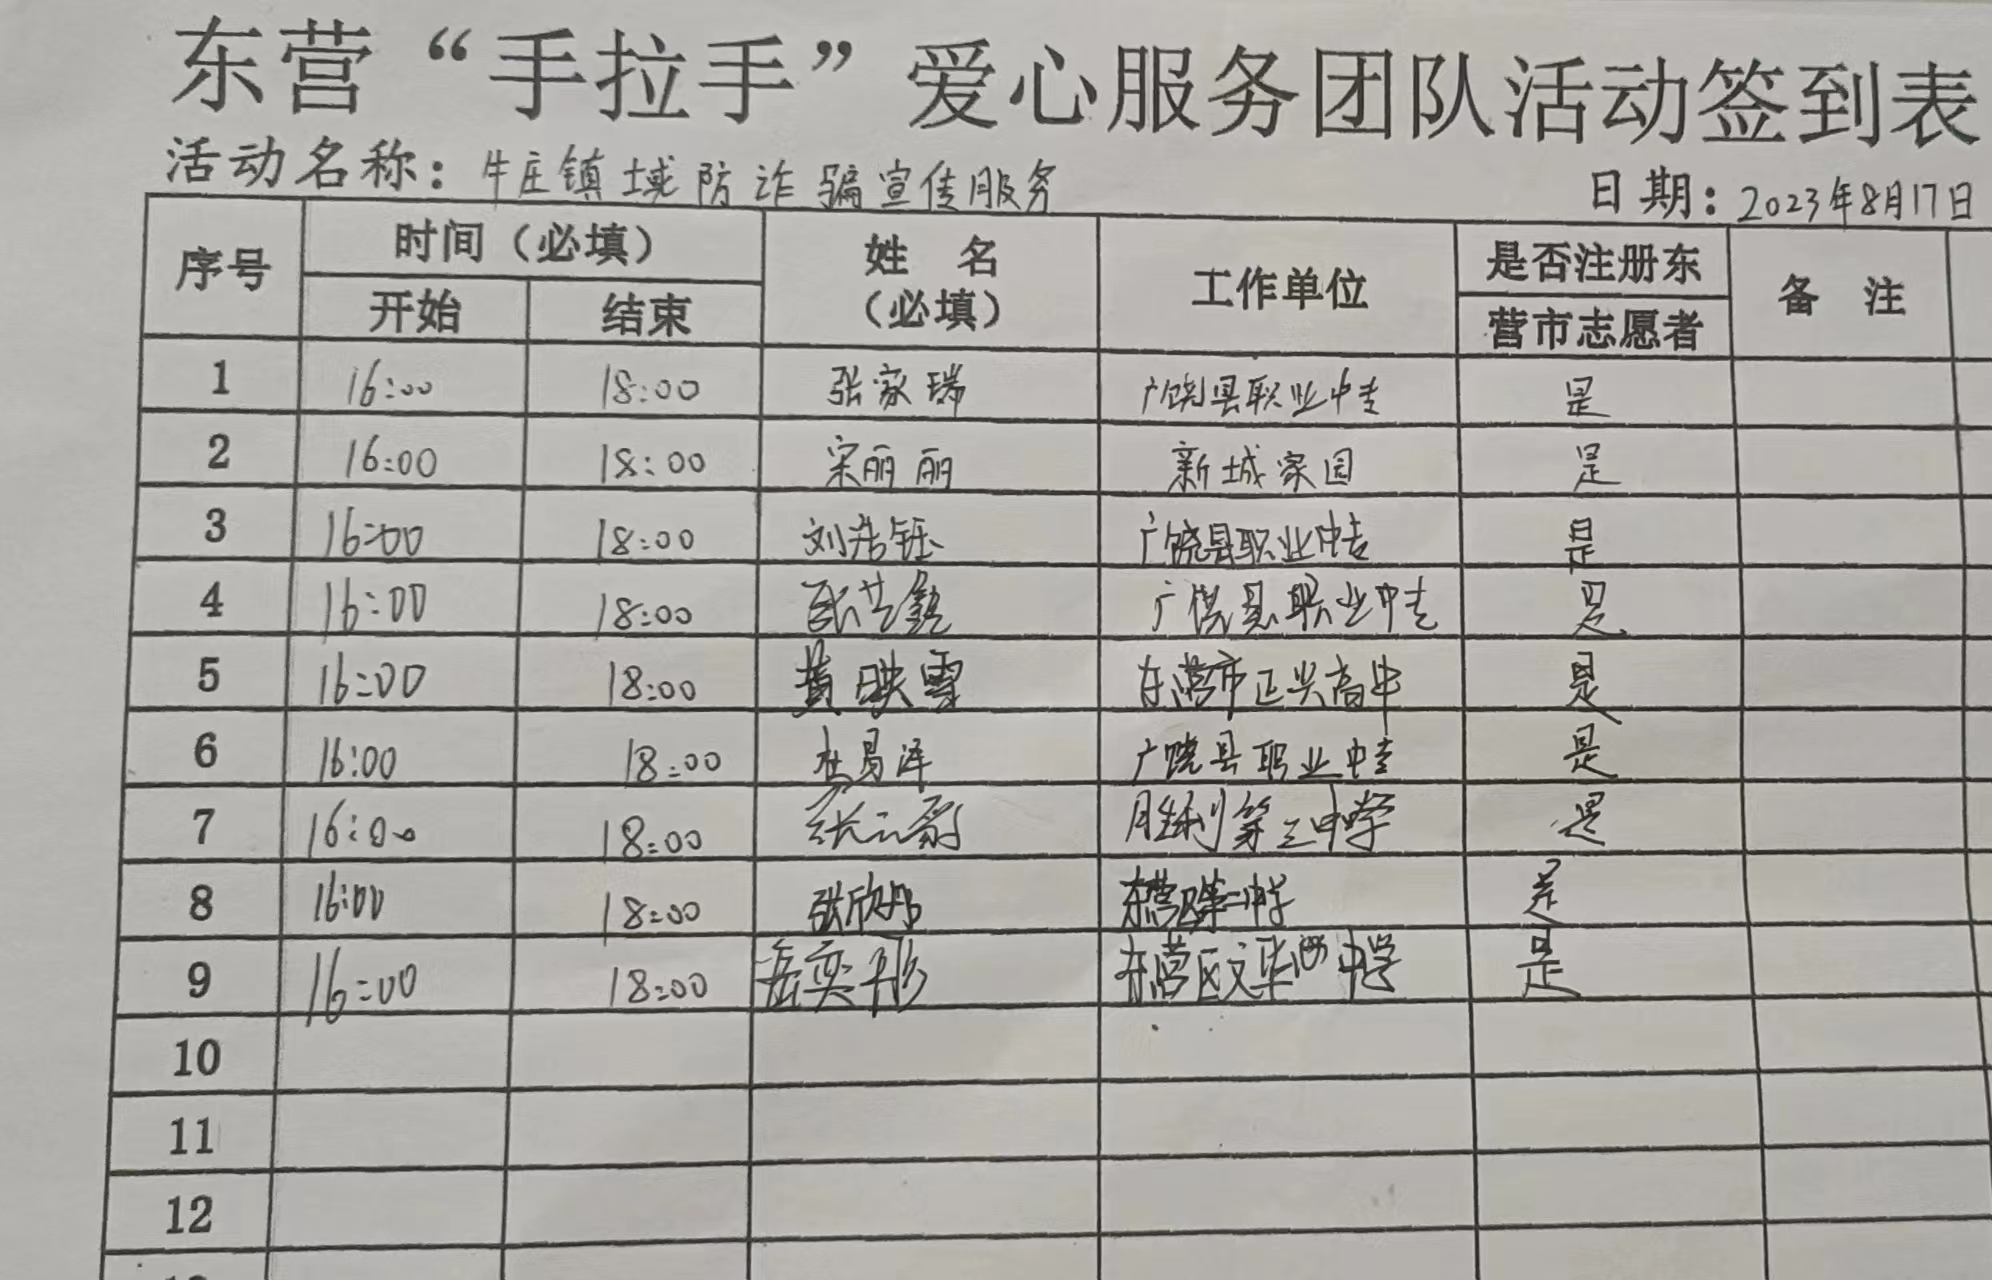 东营“手拉手”爱心服务团队活动签到表
活动名称：牛庄镇域防诈骗宣传服务 日期：2023年8月17日
序号 时间（必填） 姓 名（必填） 工作单位 是否注册东营市志愿者 备 注
开始 结束
1 16:00 18:00 张家瑞 广饶县职业中专 是
2 16:00 18:00 宋丽丽 新城家园 是
3 16:00 18:00 刘浩钰 广饶县职业中专 是
4 16:00 18:00 广饶县职业中专 是
5 16:00 18:00 黄映雪 东营市正兴高中 是
6 16:00 18:00 杜易泽 广饶县职业中专 是
7 16:00 18:00 胜利第三中学 是
8 16:00 18:00 张欣 东营区第一中学 是
9 16:00 18:00 岳奕彤 东营区文华 中学 是
10
11
12